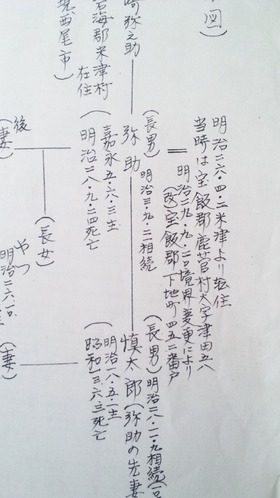 図）
明治二六・四・二米津より転住
当時は宝飯郡鹿菅村大字津田五八
明治二九・九・二〇境界変更により
（改宝飯郡下地町四五二番戸
崎弥之助
碧海郡米津村
在住
現西尾市）
（長男）
明治三・九・二相続
弥助
嘉永五・六・三生
明治二八・九・二四死亡
後
（妻）
（長女）
やつ
明治二六・
（長男）
明治二八・二・九相続
慎太郎（弥助の先妻
明治一八・五・一生
昭和三・六・三死亡
（妻）